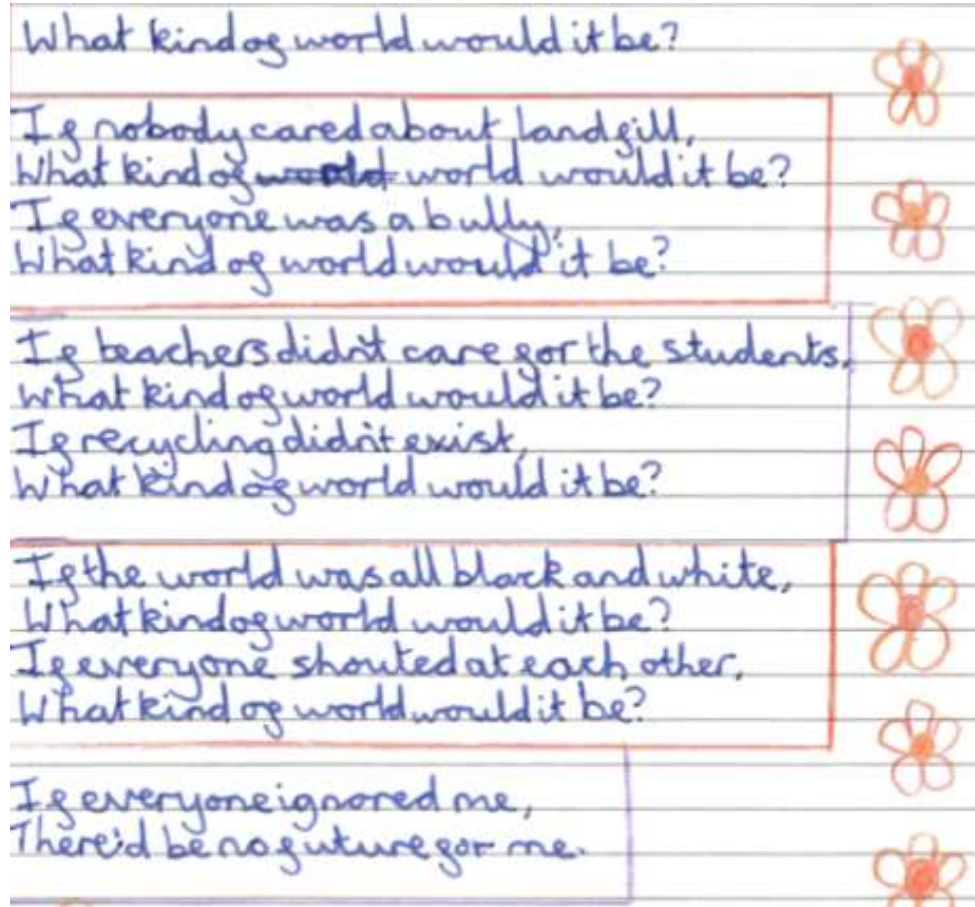 What kind of world would it be?
If nobody cared about landfill,
What kind of world world would it be?
If everyone was a bully,
What kind of world would it be?
If teachers didn't care for the students,
What kind of world would it be?
If recycling didn't exist,
What kind of world would it be?
If the world was all black and white,
What kind of world would it be?
If everyone shouted at each other,
What kind of world would it be?
If everyone ignored me,
There'd be no future for me.